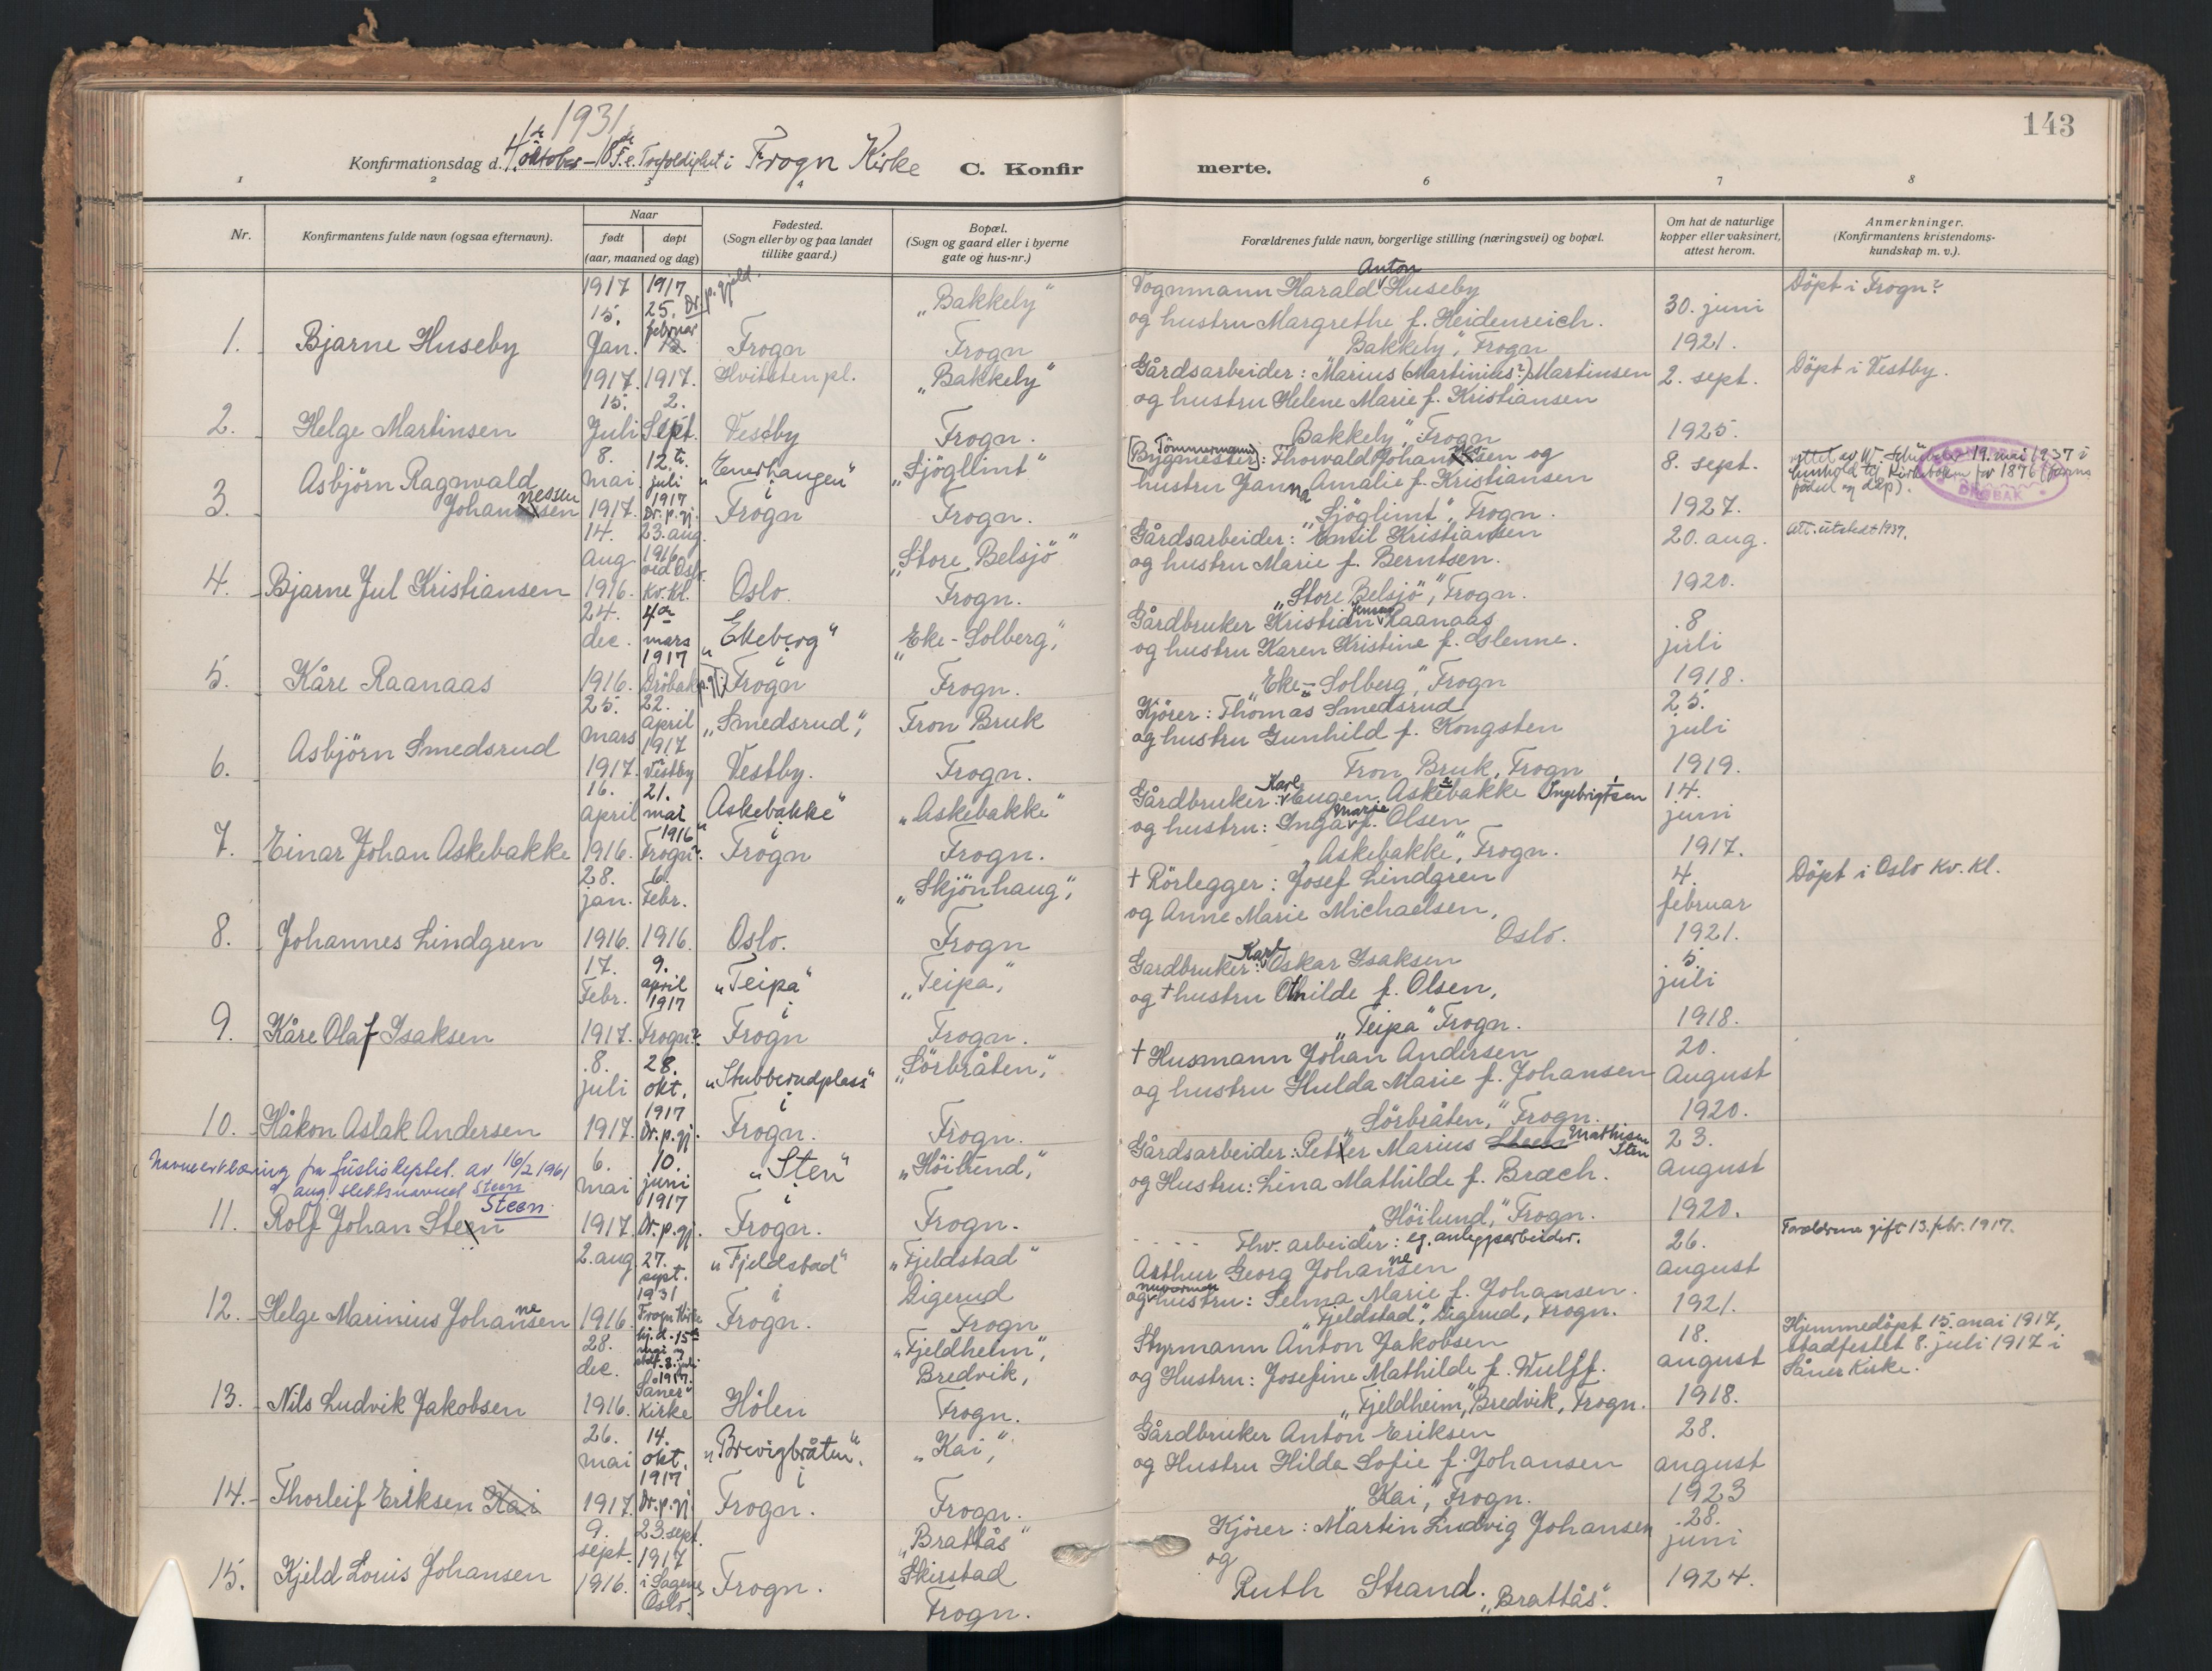 1931
Konfirmationsdag d. 4de oktober – 18de S. e. Trefoldighet i Frogn Kirke
C. Konfirmerte.
143
1 2 3 4 6 7 8
Nr.
Konfirmantens fulde navn (ogsaa efternavn).
Naar
født
døpt
(aar, maaned og dag)
Fødested.
(Sogn eller by og paa landet
tillike gaard.)
Bopæl.
(Sogn og gaard eller i byerne
gate og hus-nr.)
Forældrenes fulde navn, borgerlige stilling (næringsvei) og bopæl.
Om hat de naturlige
kopper eller vaksinert,
attest herom.
Anmerkninger.
(Konfirmantens kristendoms-
kundskap m. v.).
1. Bjarne Huseby
1917 15. Jan.
1917 25. februar
Dr. p. gjeld.
Frogn
"Bakkely"
Frogn
Vognmann Harald Anton Huseby
og hustru Margrethe f. Heidenreich.
Bakkely", Frogn
30. juni
1921.
Döpt i Frogn?
2. Helge Martinsen
1917. 15. Juli
1917. 2. Sept.
Hvitsten pl.
Vestby
"Bakkely"
Frogn.
Gårdsarbeider: Marius (Martinius?) Martinsen
og hustru Helene Marie f. Kristiansen
Bakkely", Frogn
2. sept.
1925.
Döpt i Vestby.
3. Asbjörn Ragnwald
Johannessen
8. mai 1917.
12. juli 1917 Dr. p. gj.
"Enerhaugen"
i
Frogn
"Sjöglimt"
Frogn.
[Bygmester]: Tömmermann Thorvald Johansen og
hustru Janna Amalie f. Kristiansen
"Sjöglimt", Frogn.
8. sept.
1927.
19. mai 1937 i
henhold til Kirkeboken for 1876
DRØBAK
4. Bjarne Jul Kristiansen
14. aug 1916.
23. aug. 1916 ved Oslo Kv. Kl.
Oslo.
"Store Belsjö"
Frogn.
Gårdsarbeider: Emil Kristiansen
og hustru Marie f. Berntsen.
"Store Belsjö", Frogn.
20. aug.
1920.
att. utstedt 1937.
5. Kåre Raanaas
24. dec. 1916.
4de mars 1917 Dröbak p. gj.
"Ekeberg"
i
Frogn
"Eke-Solberg",
Frogn.
Gårdbruker Kristian Jensen Raanaas
og hustru Karen Kristine f. Glenne.
"Eke-Solberg", Frogn
8
juli
1918.
6. Asbjörn Smedsrud
25. mars 1917.
22. april 1917 Vestby
"Smedsrud",
Vestby.
Fron Bruk
Frogn.
Kjörer: Thomas Smedsrud
og hustru Gunhild f. Kongsten
Fron Bruk, Frogn
25.
juli
1919.
7. Einar Johan Askebakke
16. april 1916.
21. mai 1916 Frogn?
"Askebakke"
i
Frogn
"Askebakke"
Frogn.
Gårdbruker: Karl Eugen Askebakke Ingebrigtsen
og hustru: Inga Marie f. Olsen
"Askebakke", Frogn.
14.
juni
1917.
8. Johannes Lindgren
28. jan. 1916.
6. Febr. 1916.
Oslo.
"Skjönhaug",
Frogn
† Rörlegger: Josef Lindgren
og Anne Marie Michaelsen,
Oslo.
4.
februar
1921.
Döpt i Oslo Kv. Kl.
9. Kåre Olaf Isaksen
17. Febr. 1917.
9. april 1917 Frogn?
"Teipa"
i
Frogn
"Teipa",
Frogn.
Gardbruker: Karl Oskar Isaksen
og † hustru Othilde f. Olsen,
"Teipa" Frogn.
5.
juli
1918.
10. Håkon Aslak Andersen
8. juli 1917.
28. okt. 1917 Dr. p. gj.
"Stubberudplass"
i
Frogn.
"Sörbråten",
Frogn.
† Husmann Johan Andersen
og hustru Hulda Marie f. Johansen
"Sörbråten," Frogn.
20.
August
1920.
Navneerklæring fra Justisdeptet. av 16/2 1961
ang. slektsnavnet Steen
11. Rolf Johan Steen Steen
6. mai 1917.
10. juni 1917 Dr. p. gj.
"Sten"
i
Frogn.
"Höilund",
Frogn.
Gårdsarbeider: Petter Marius Steen Mathisen Sten
og Hustru: Lina Mathilde f. Bræch.
"Höilund", Frogn.
23.
august
1920.
12. Helge Marinius Johannesen
2. aug 1916.
27. sept. 1931 Frogn Kirke
"Fjeldstad"
i
Frogn.
"Fjeldstad"
Digerud
Frogn
Fhv. arbeider: eg. anleggsarbeider.
Arthur Georg Johannesen
og nuværende hustru: Selma Marie f. Johansen.
"Fjeldstad", Digerud, Frogn.
26.
august
1921.
Foreldrene gift 13. febr. 1917.
13. Nils Ludvik Jakobsen
28. dec. 1916.
hj. d. 15de mai og stdf. 8. juli 1917. Såner Kirke
Hölen
"Fjeldheim",
Bredvik,
Frogn.
Styrmann Anton Jakobsen
og Hustru: Josefine Mathilde f. Wulff.
"Fjeldheim", Bredvik, Frogn.
18.
august
1918.
Hjemmedöpt 15. mai 1917,
stadfestet 8. juli 1917 i
Såner Kirke.
14. Thorleif Eriksen Kai
26. mai 1917.
14. okt. 1917 Dr. p. gj
"Brevigbråten".
i
Frogn.
"Kai",
Frogn.
Gårdbruker Anton Eriksen
og Hustru Hilda Sofie f. Johansen
"Kai", Frogn.
28.
august
1923
15. Kjeld Louis Johansen
9. sept. 1916.
23. sept. 1917 i Sagene, Oslo.
Frogn.
"Brattås"
Skirstad
Frogn.
Kjörer: Martin Ludvig Johansen
og
Ruth Strand. "Brattås".
28.
juni
1924.